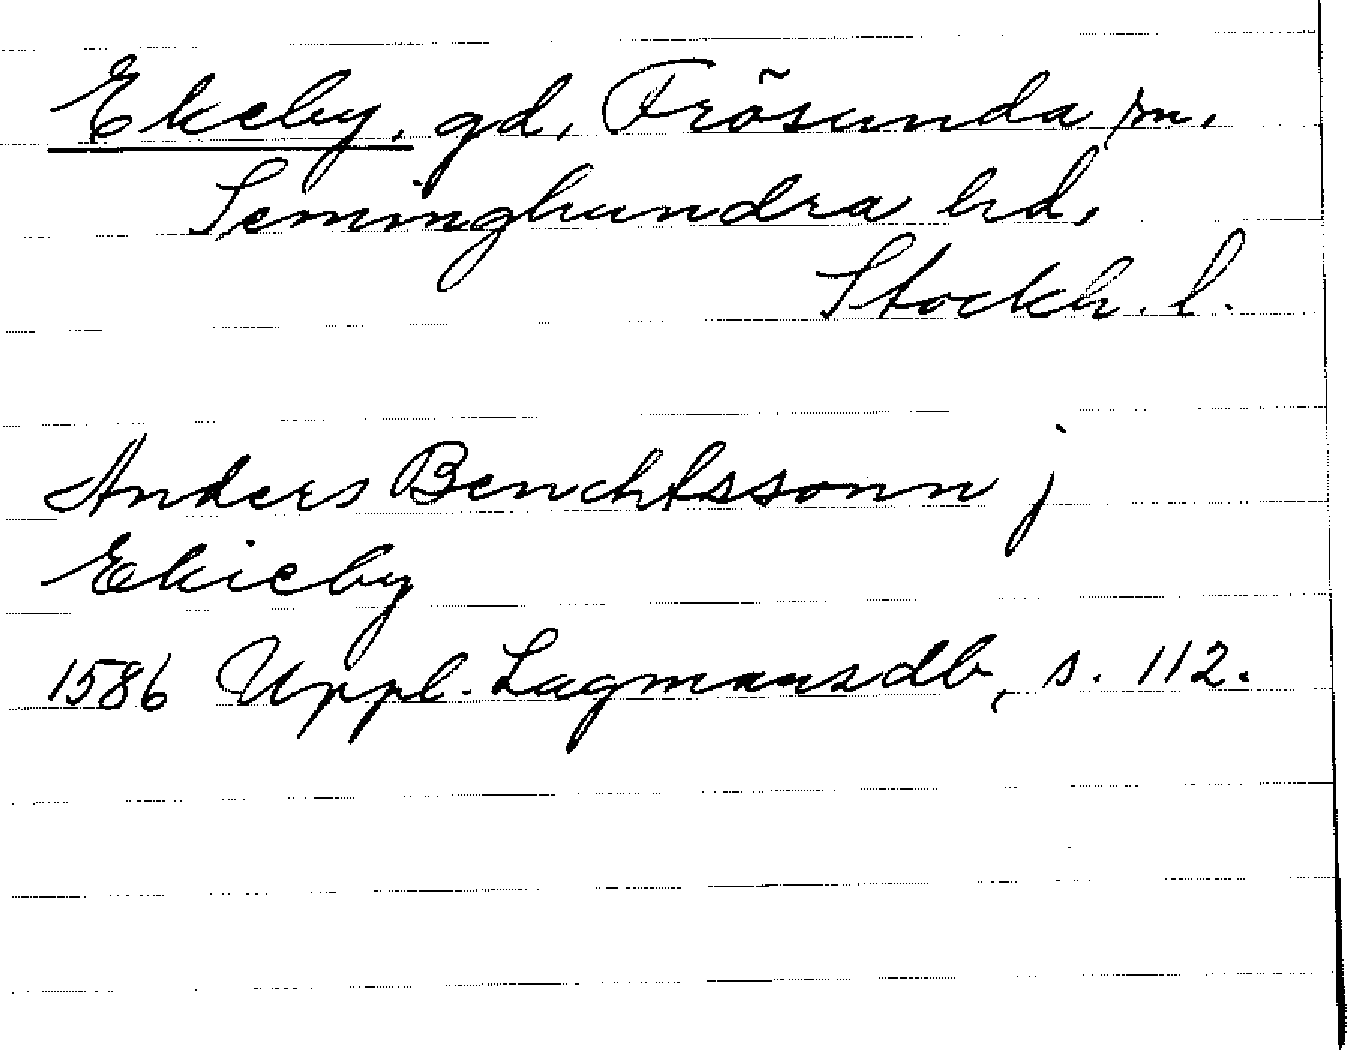 Ekeby, gd, Frösunda sn,
Seminghundra hd,
Stockh. l.
Anders Benchtssonn j
Ekieby
1586 Uppl. Lagmansdb, s. 112.